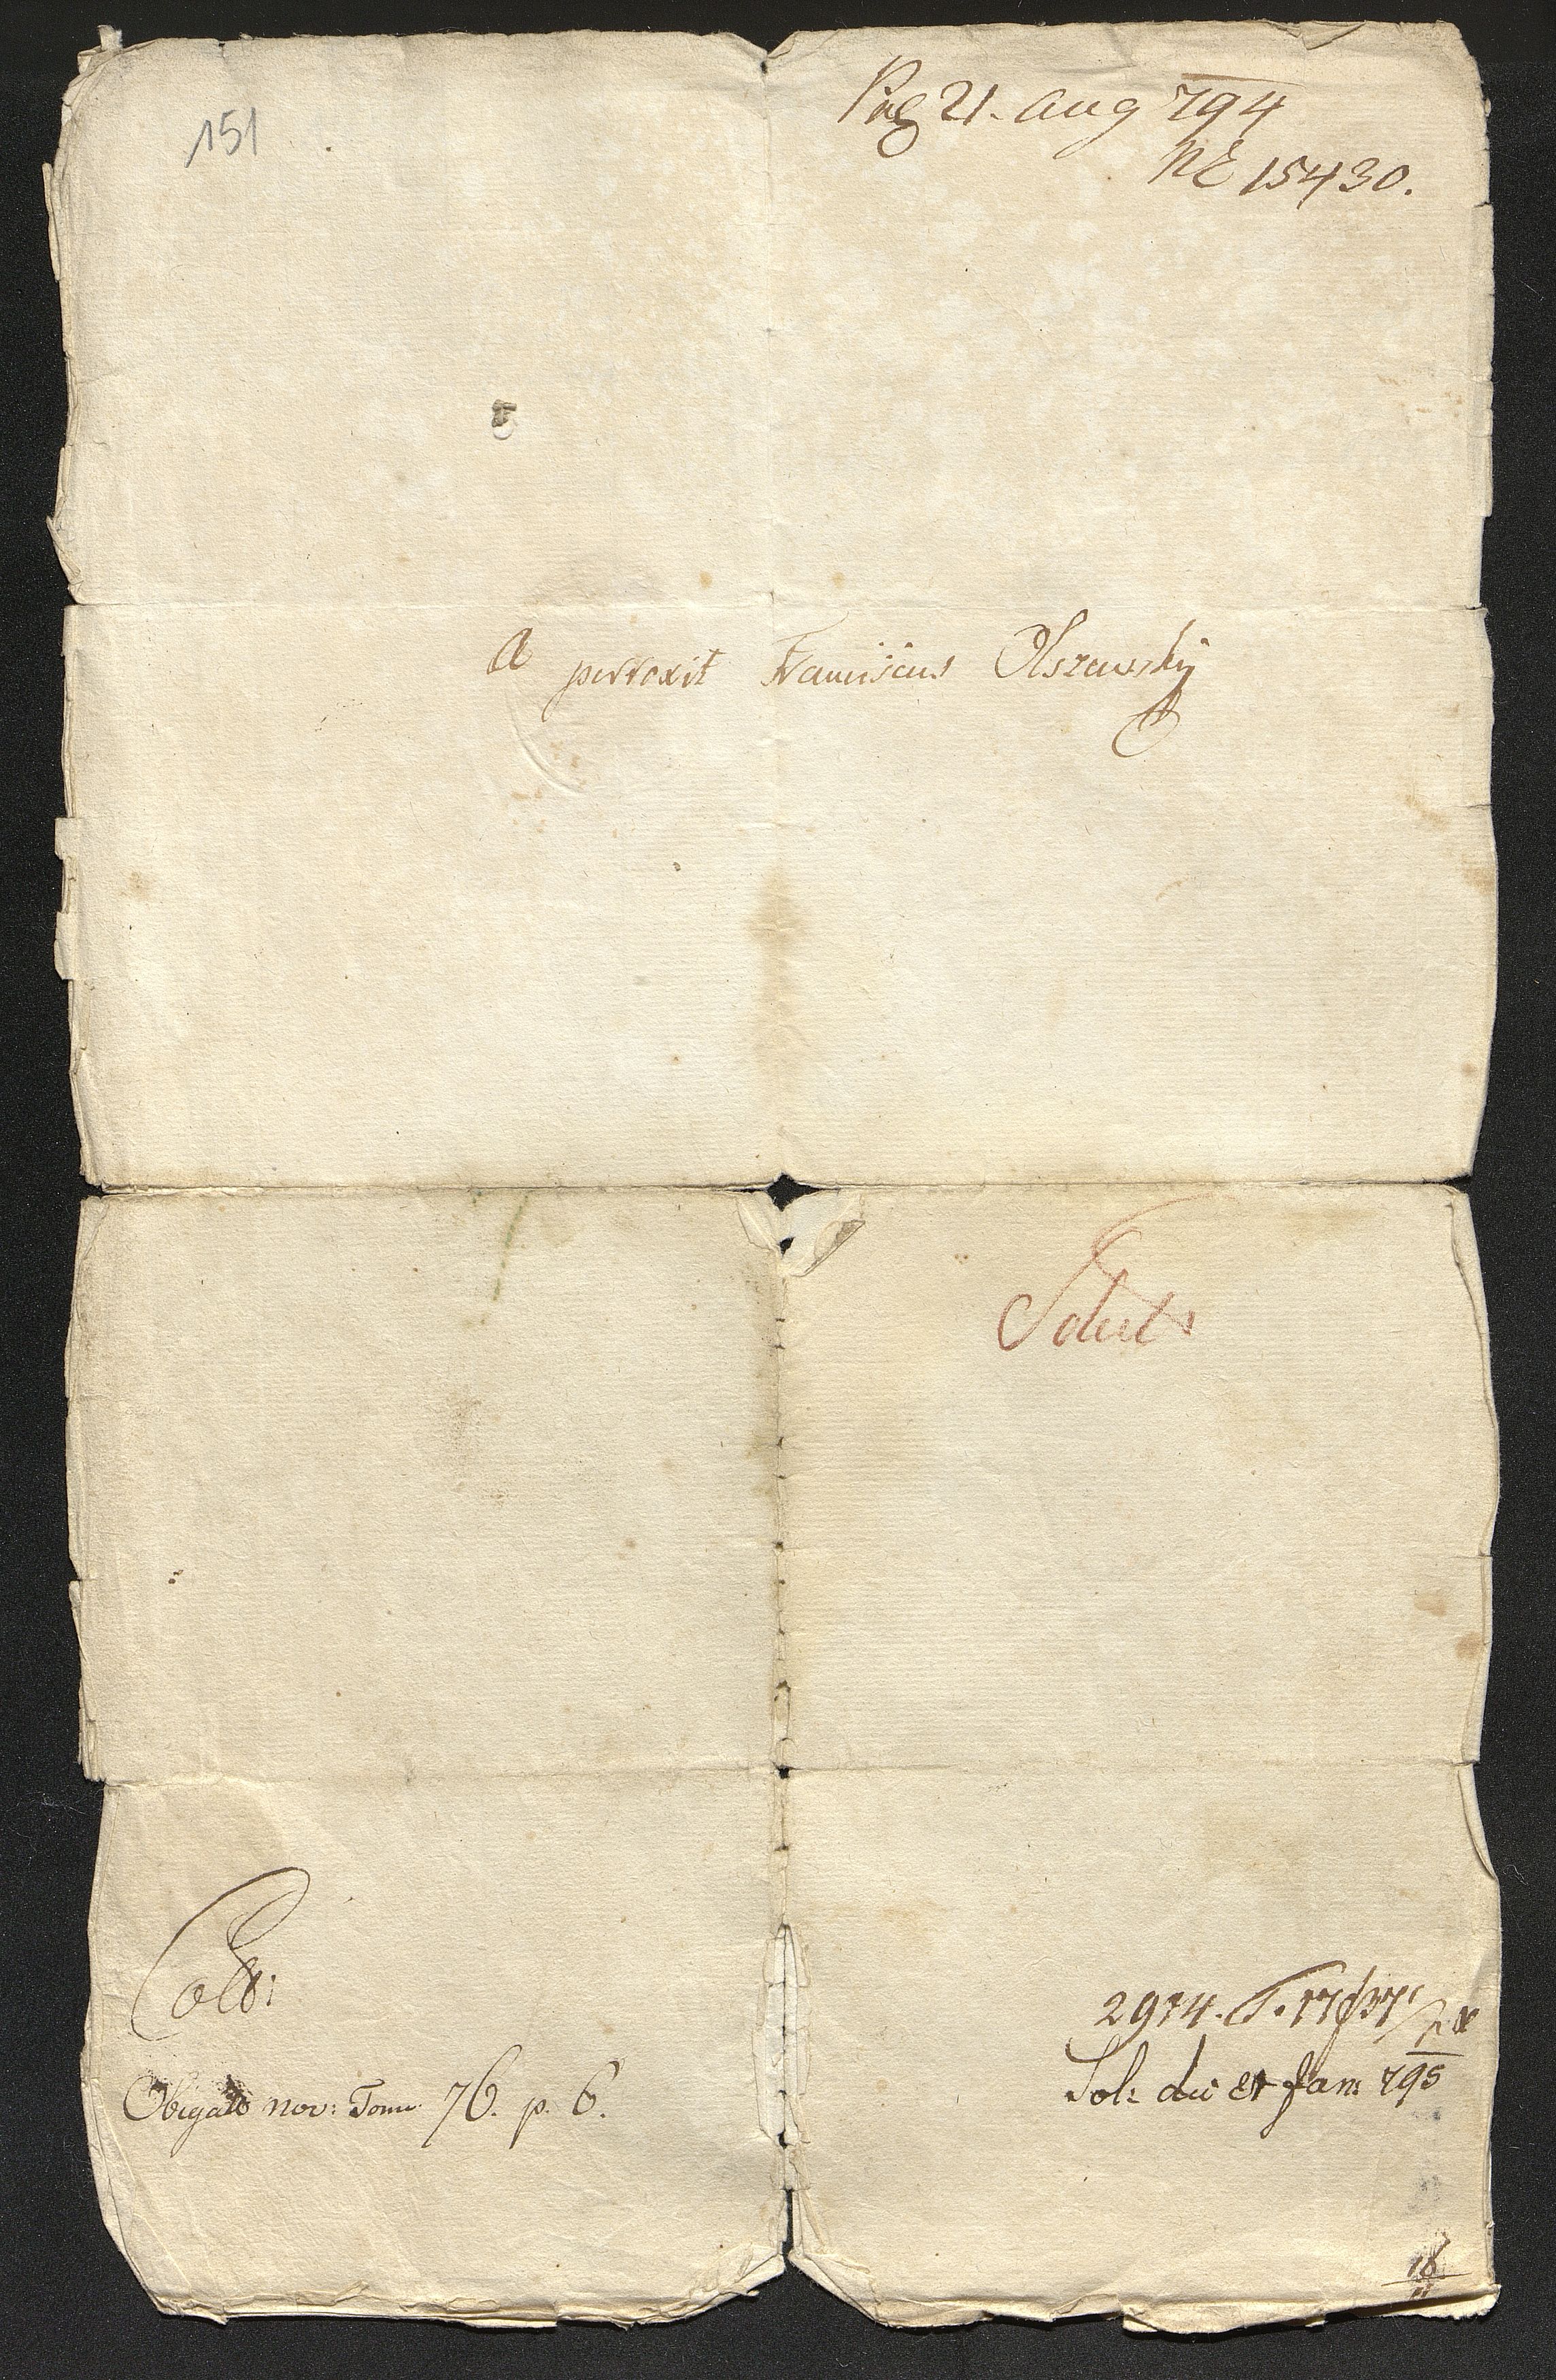 151
21. aug 794
NE 15430.
a perrexit Franciscus Olszewskij
Solut
Coll:
Obigat nov: Tom. 76. p. 6.
2974. T. 17
Sol: die 21 Jan: 795